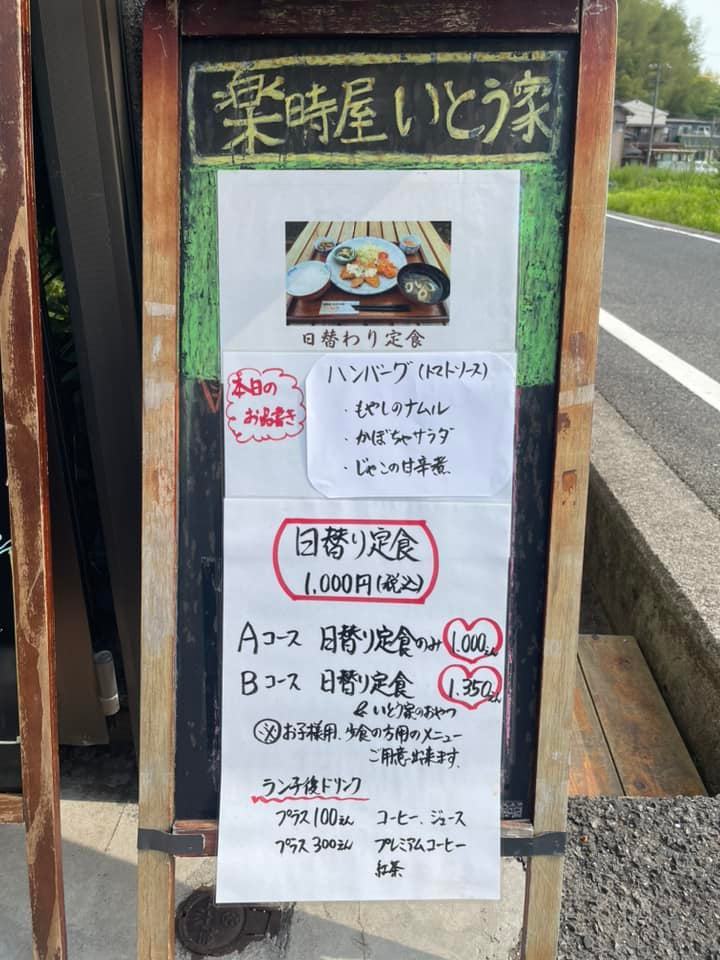 楽時屋いとう家
日替わり定食
本日の
お品書き
ハンバーグ(トマトソース)
・もやしのナムル
・かぼちゃサラダ
・じゃこの甘辛煮
日替り定食
1,000円(税込)
Aコース 日替り定食のみ 1.000えん
Bコース 日替り定食 1.350えん
& いとう家のおやつ
※お子様用、少食の方用のメニュー
ご用意出来ます。
ランチ後ドリンク
プラス100えん コーヒー、ジュース
プラス300えん プレミアムコーヒー
紅茶